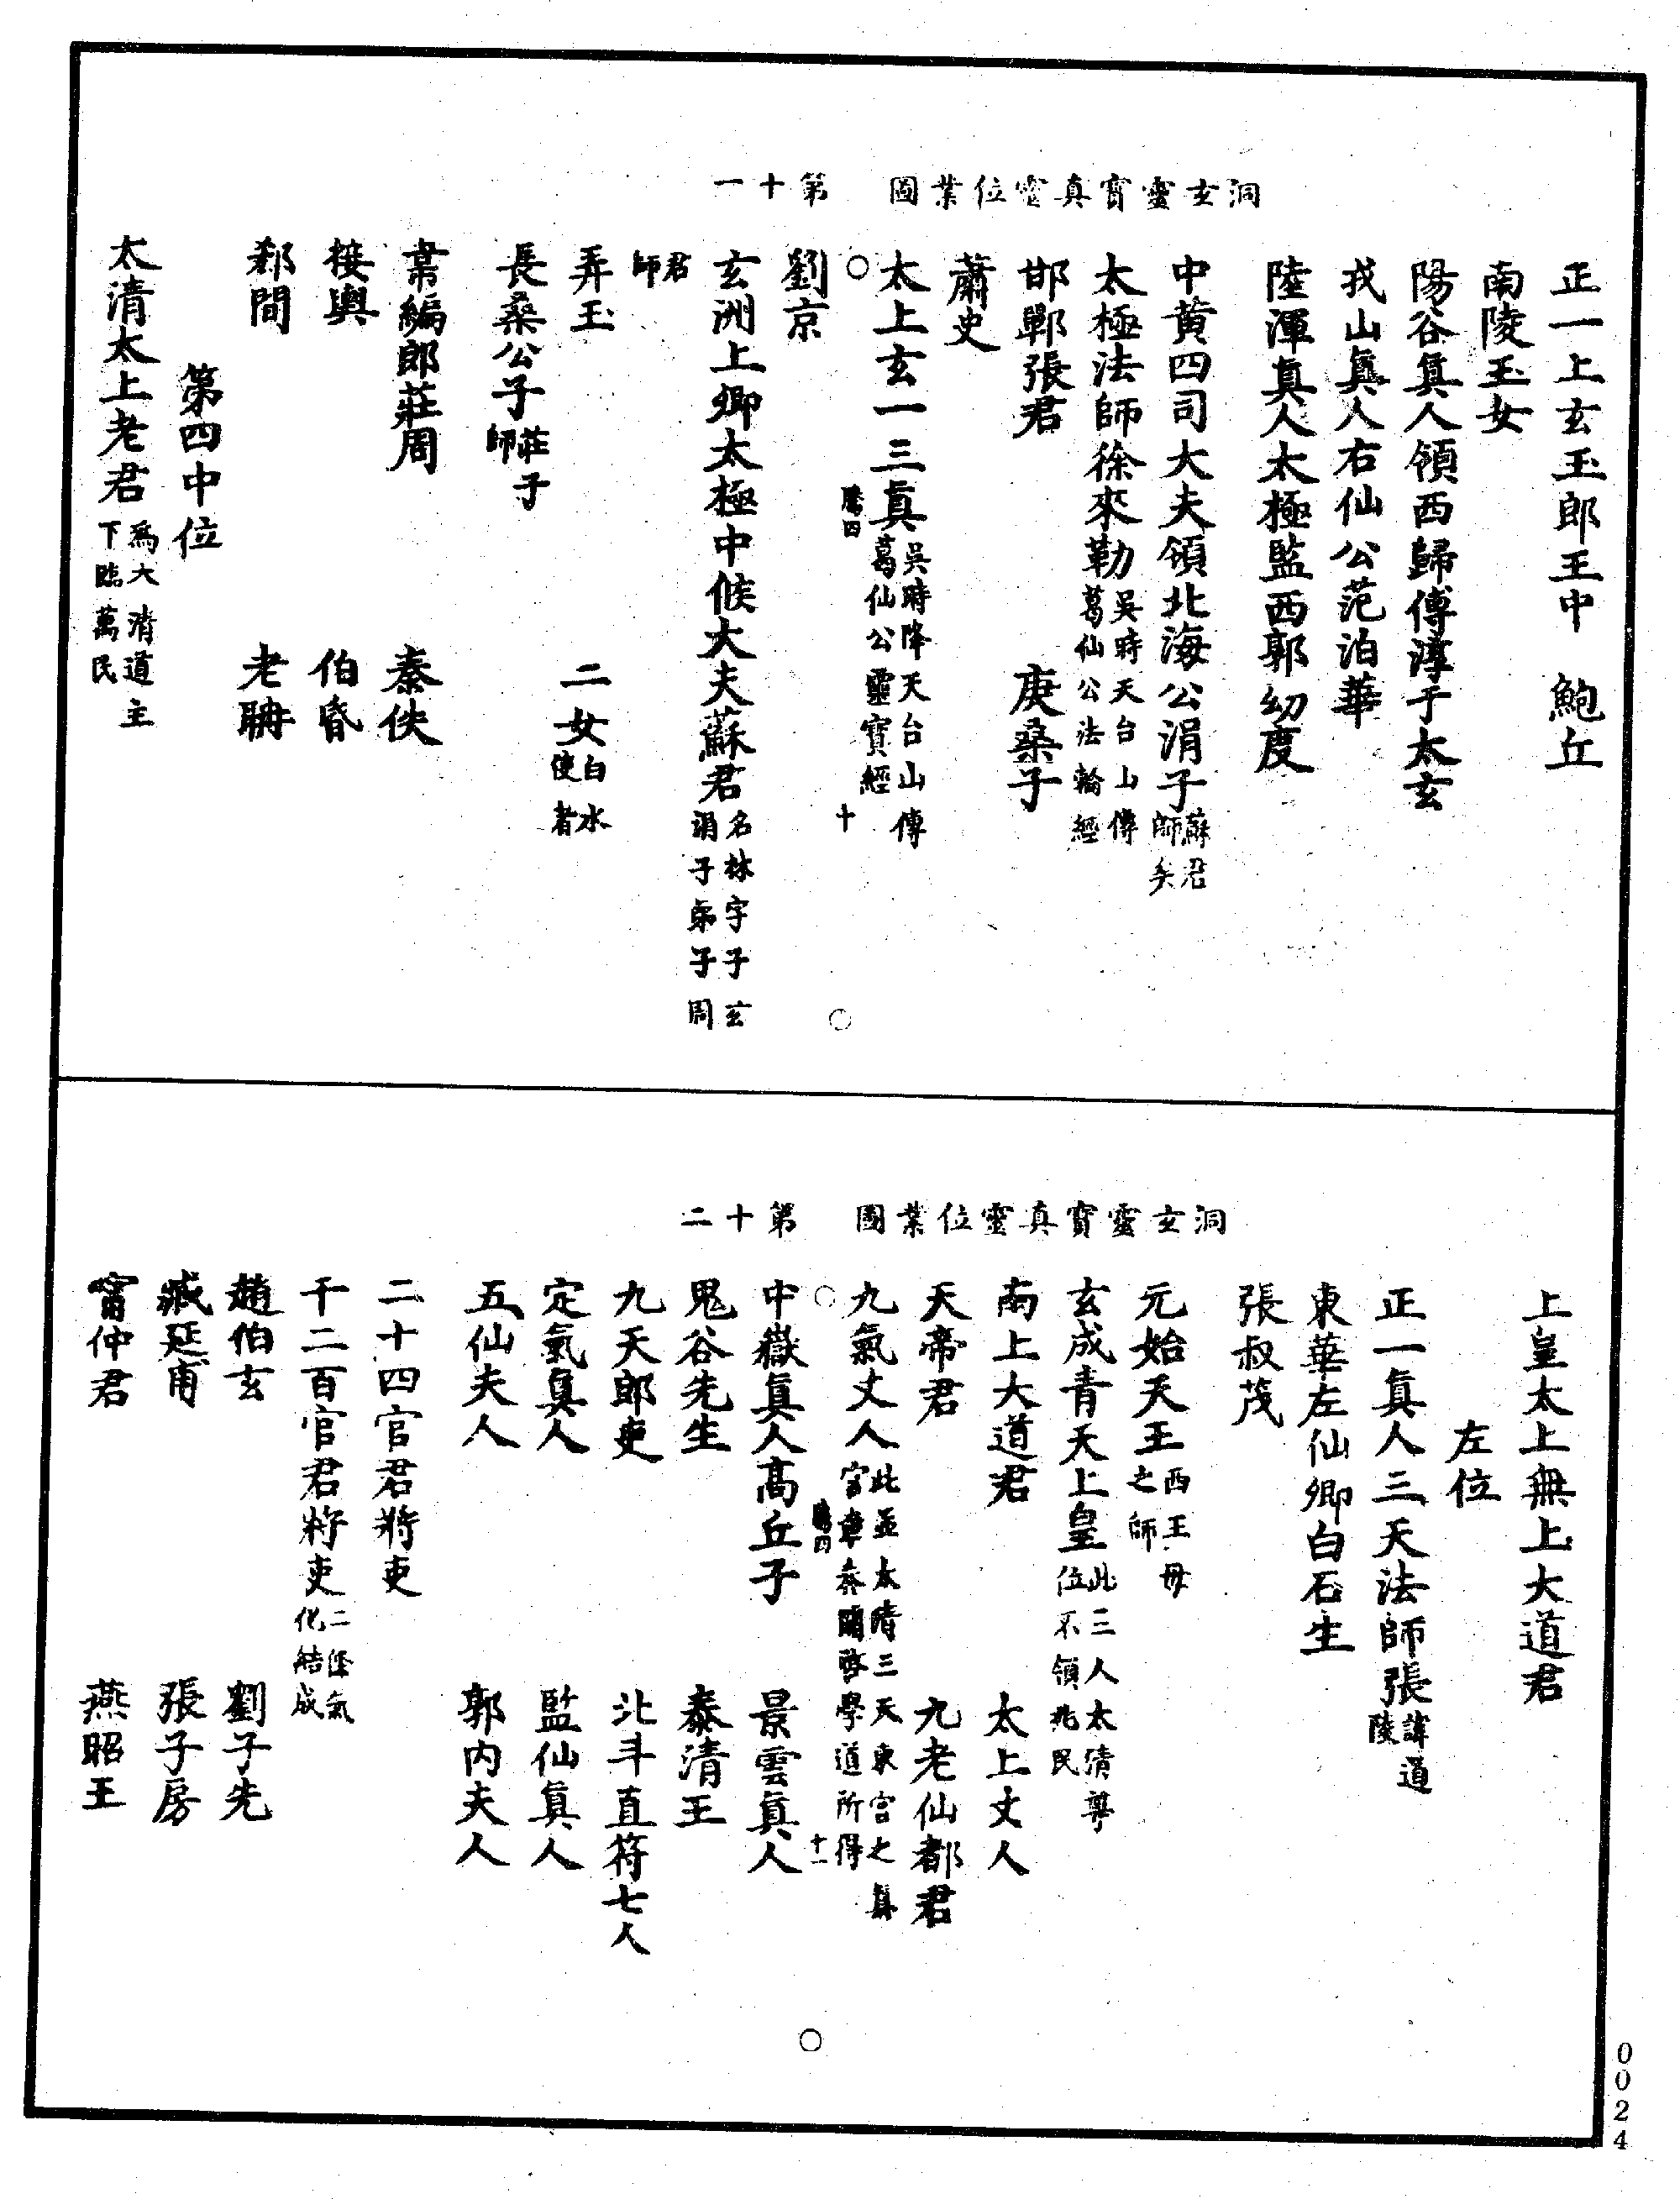 洞玄靈寶真靈位業圖　第十一
正一上玄玉郎王中　鮑丘
南陵玉女
陽谷真人領西歸傅淳于太玄
戎山真人右仙公范泊華
陸渾真人太極監西郭幼度
中黃四司大夫領北海公涓子蘇君師矣
太極法師徐來勒吳時天台山傳葛仙公法輪經
邯鄲張君　庚桑子
蕭史
太上玄一三真吳時降天台山傳葛仙公靈寶經
○　騰四　十　○
劉京
玄洲上卿太極中候大夫蘇君名林字子玄涓子弟子周
君師
弄玉　二女白水使者
長桑公子莊子師
韋編郎莊周　秦佚
接輿　伯昏
郄間　老聃
第四中位
太清太上老君爲太清道主下臨萬民
洞玄靈寶真靈位業圖　第十二
上皇太上無上大道君
左位
正一真人三天法師張諱道陵
東華左仙卿白石生
張叔茂
元始天王西王母之師
玄成青天上皇此三人太清尊位不領兆民
南上大道君　太上丈人
天帝君　九老仙都君
九氣丈人此並太清三天東宮之真官章奏關啓學道所得
○　騰四　十一　○
中嶽真人高丘子　景雲真人
鬼谷先生　泰清王
九天郎吏　北斗直符七人
定氣真人　監仙真人
五仙夫人　郭內夫人
二十四官君將吏
千二百官君將吏二條氣化結成
趙伯玄　劉子先
臧延甫　張子房
甯仲君　燕昭王
0024